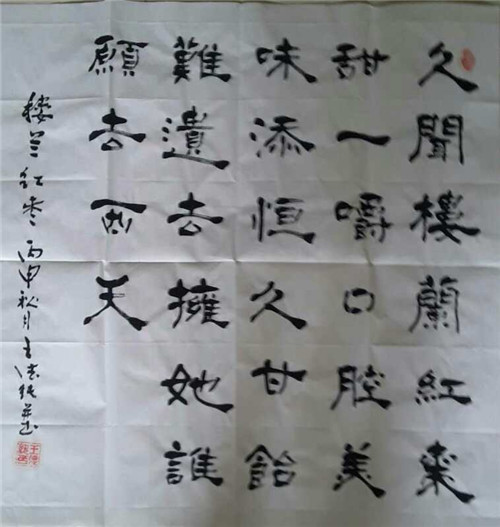 久聞樓蘭紅棗
甜一嚼口腔美
味添恒久甘飴
難遺去擁她誰
願去西天
楼兰红枣 丙申秋月王